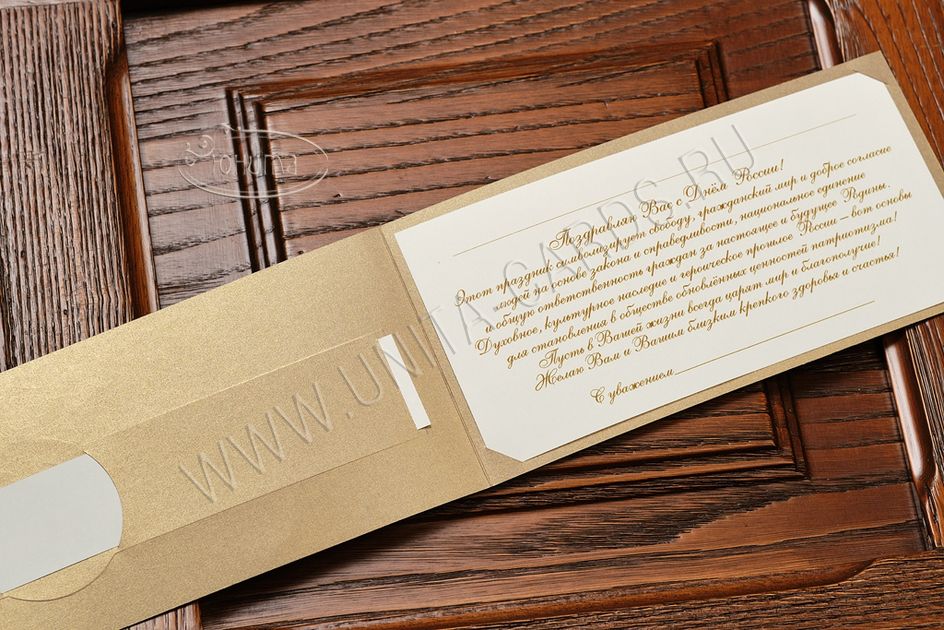 Поздравляю Вас с Днём России!
Этот праздник символизирует свободу, гражданский мир и доброе согласие
людей на основе закона и справедливости, национальное единение
и общую ответственность граждан за настоящее и будущее Родины.
Духовное, культурное наследие и героическое прошлое России – вот основы
для становления в обществе обновлённых ценностей патриотизма!
Пусть в Вашей жизни всегда царят мир и благополучие!
Желаю Вам и Вашим близким крепкого здоровья и счастья!
С уважением
WWW.UNITA-CARDS.RU